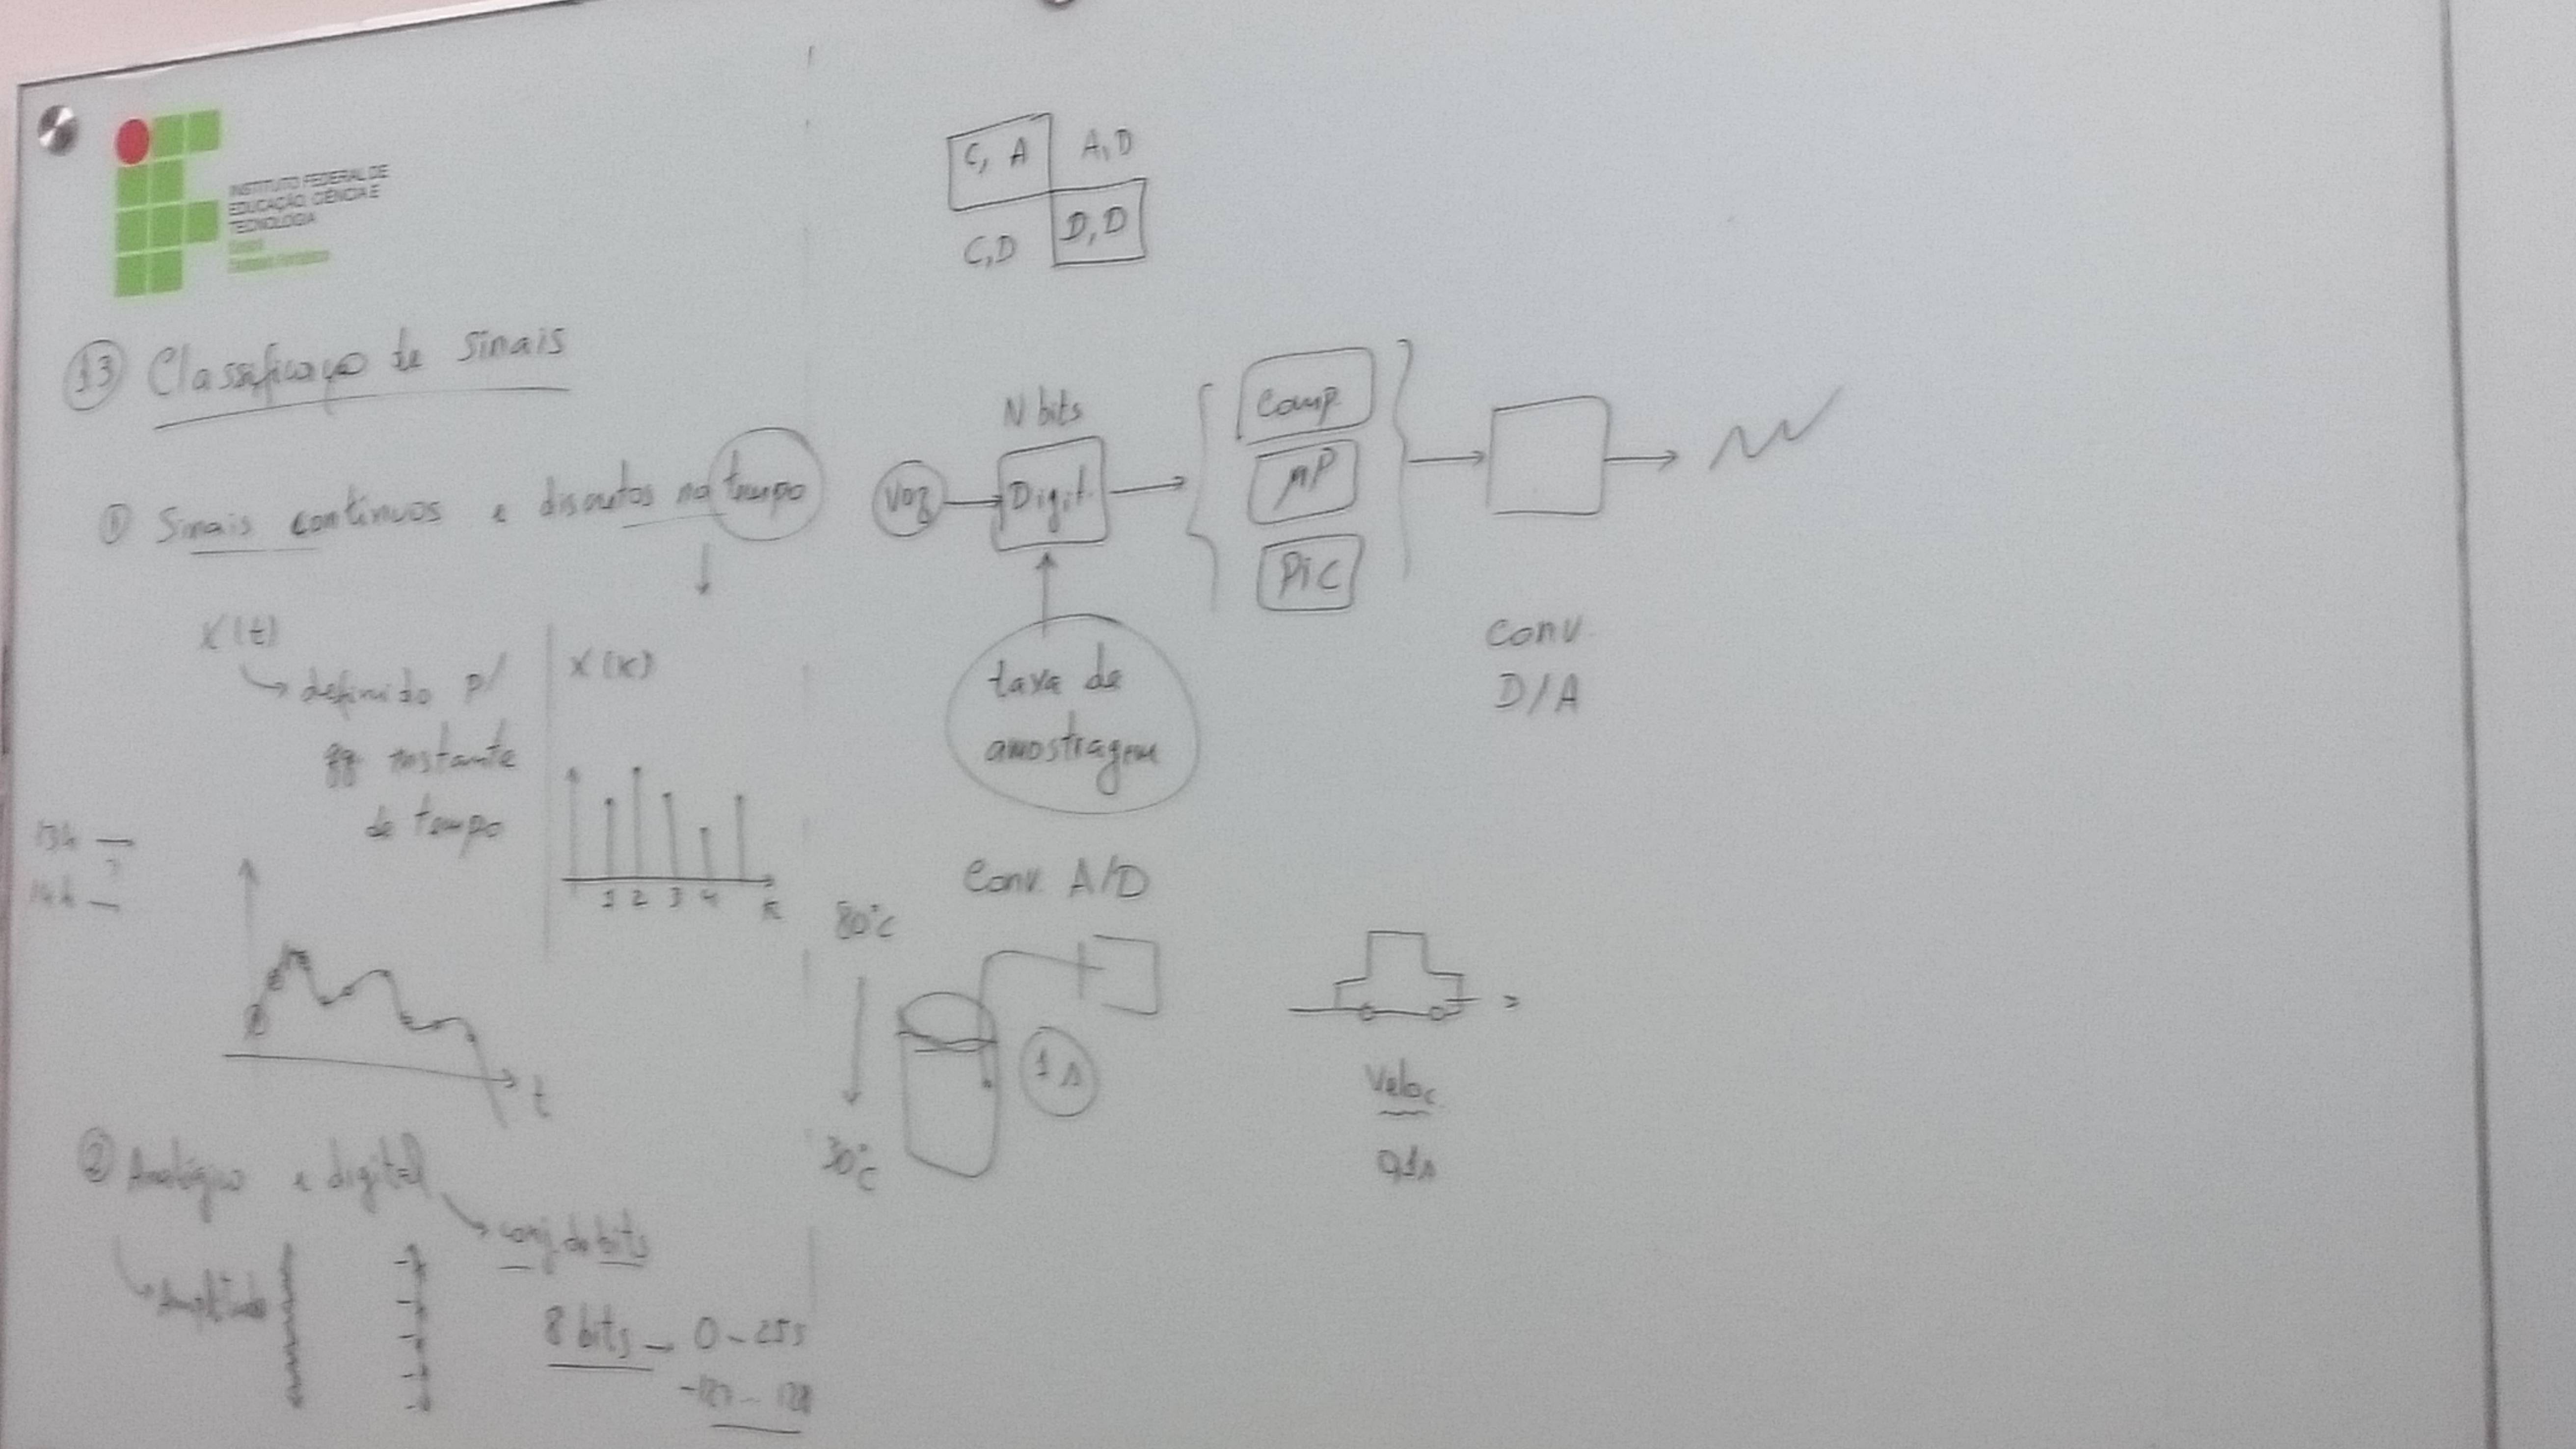 INSTITUTO FEDERAL DE
EDUCAÇÃO, CIÊNCIA E
TECNOLOGIA
13 Classificação de sinais
① Sinais contínuos e discretos no tempo
X(t)
definido p/
qq instante
de tempo
13h
14h
t
X(k)
1 2 3 4 k
② Analógico e digital
Amplitude
conj. de bits
8 bits → 0 - 255
C, A
A, D
C, D
D, D
N bits
voz
Digit.
taxa de
amostragem
Conv. A/D
Comp.
μP
Pic
Conv.
D/A
80°C
30°C
1 s
Veloc
0,1s